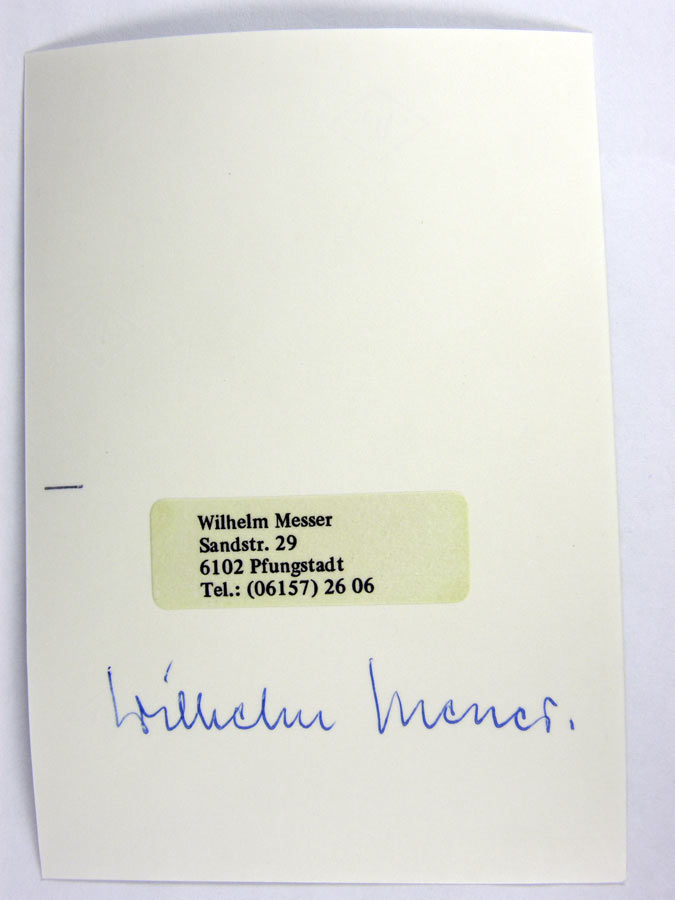 Wilhelm Messer
Sandstr. 29
6102 Pfungstadt
Tel.: (06157) 26 06
Wilhelm Messer.